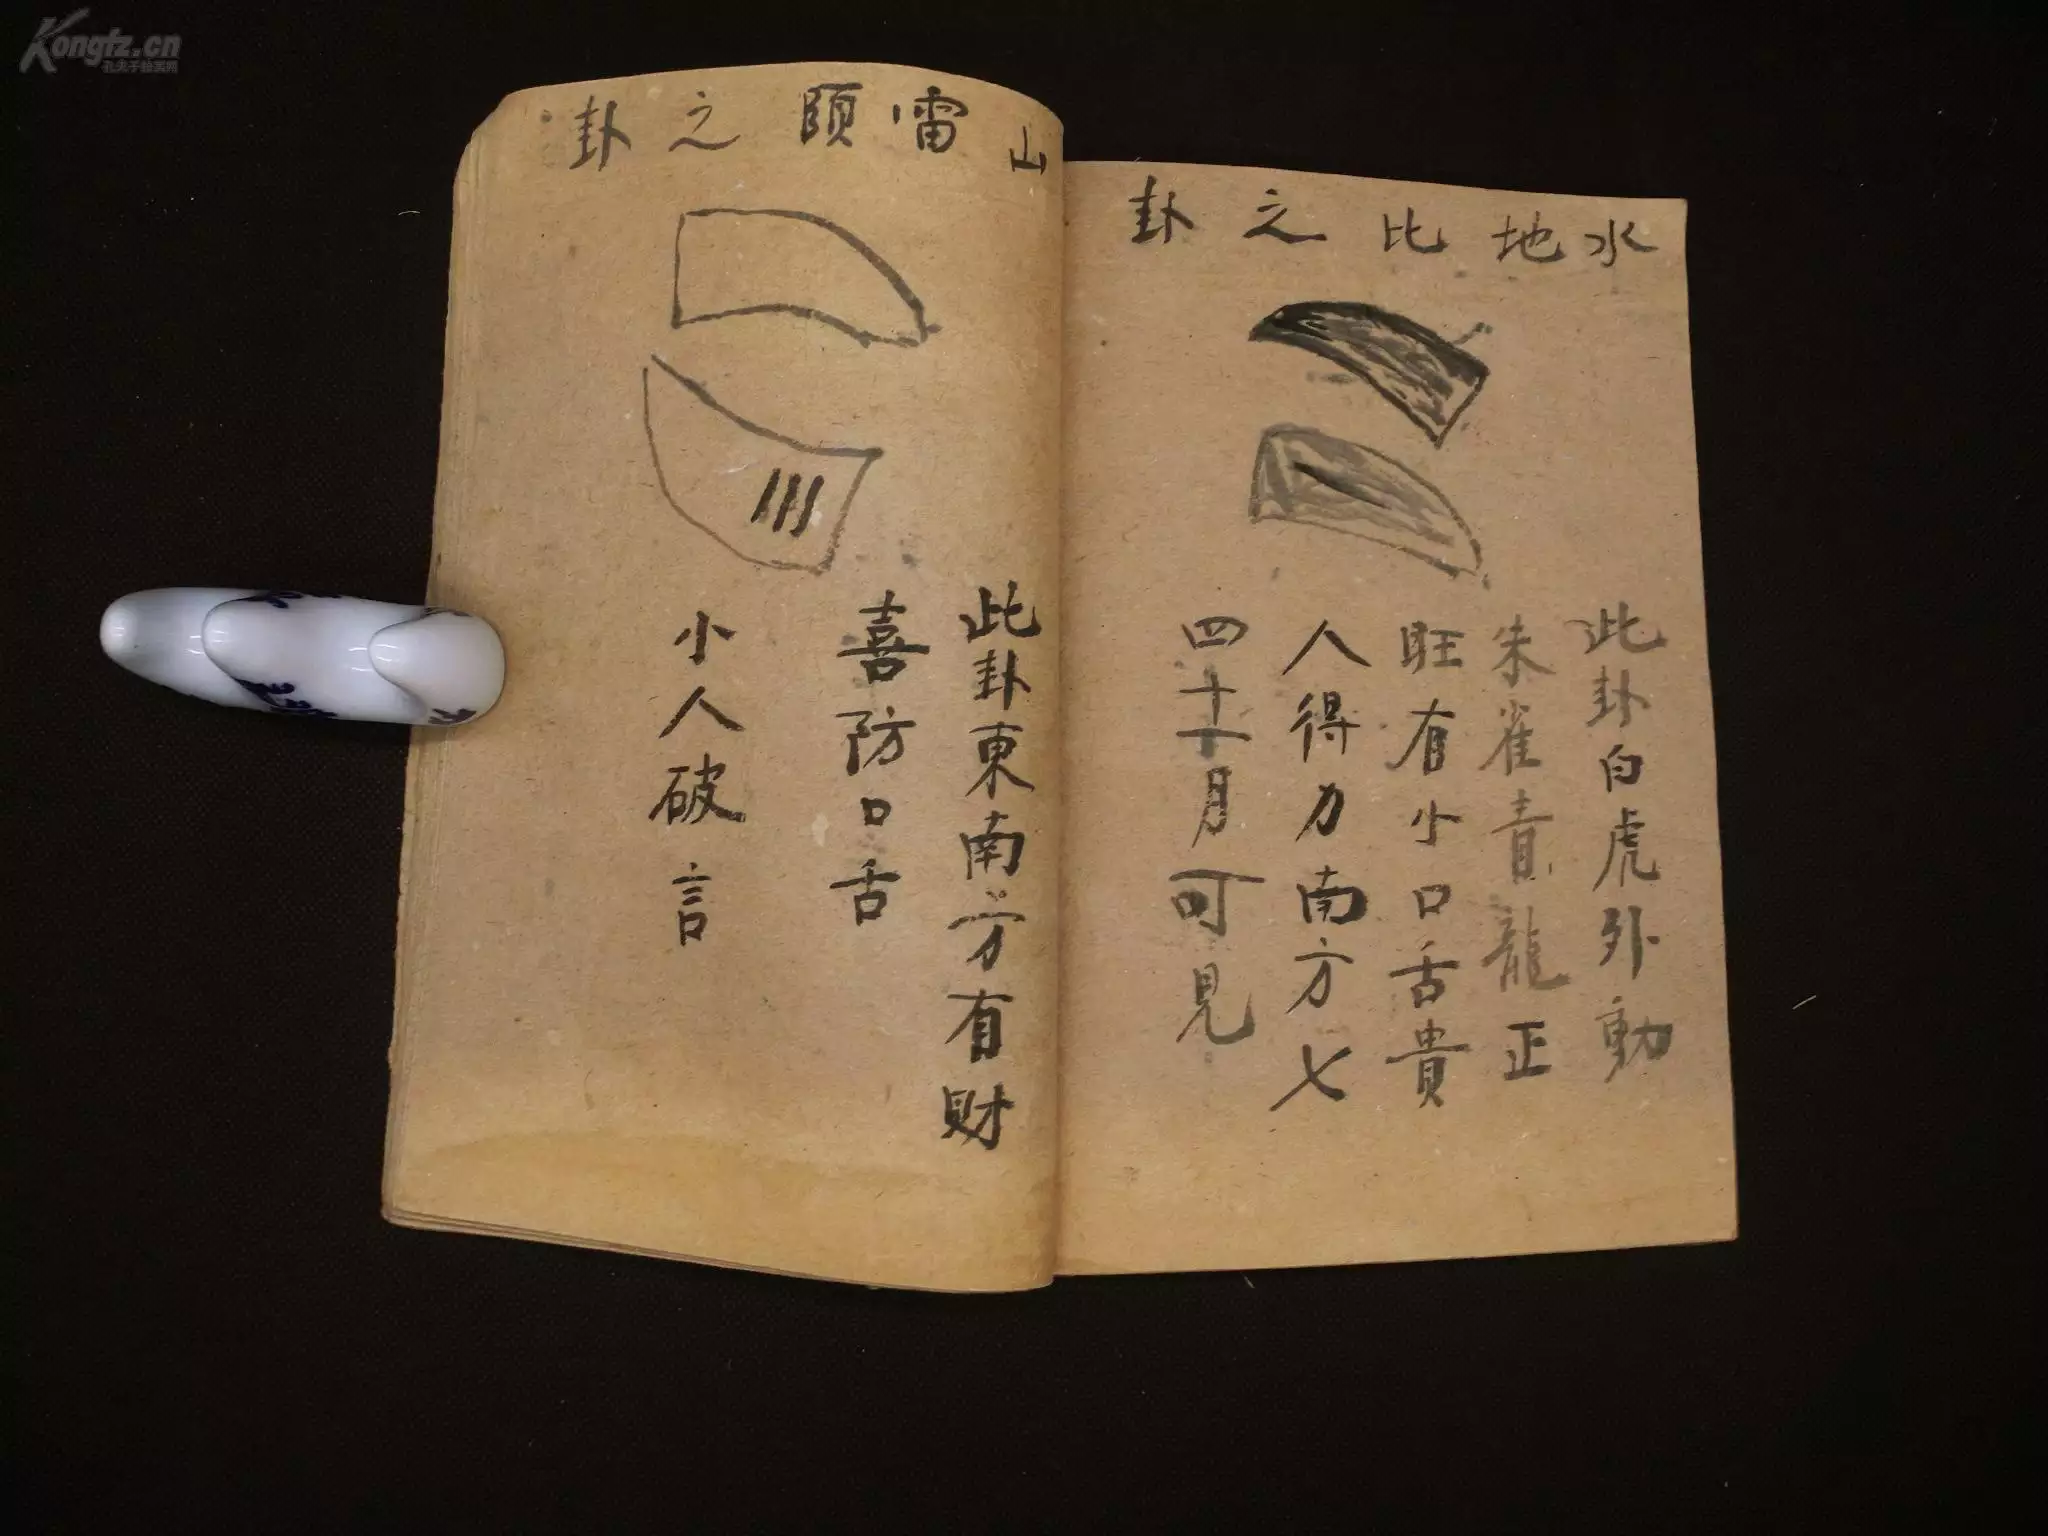 水地比之卦
此卦白虎外動
朱雀青龍正
旺有小口舌貴
人得力南方七
四十一月可見
山雷頤之卦
此卦東南方有財
喜防口舌
小人破言
Kongfz.cn
孔夫子拍卖网